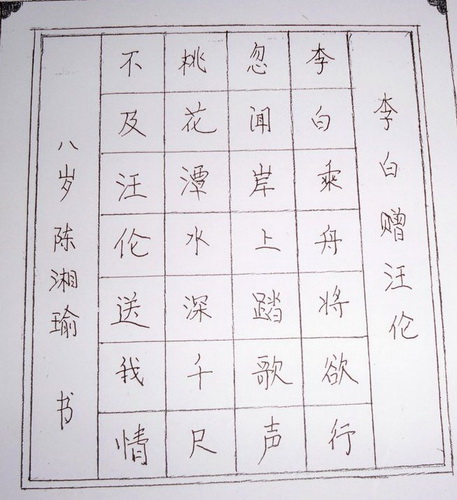 李白赠汪伦
李白乘舟将欲行
忽闻岸上踏歌声
桃花潭水深千尺
不及汪伦送我情
八岁 陈湘瑜 书